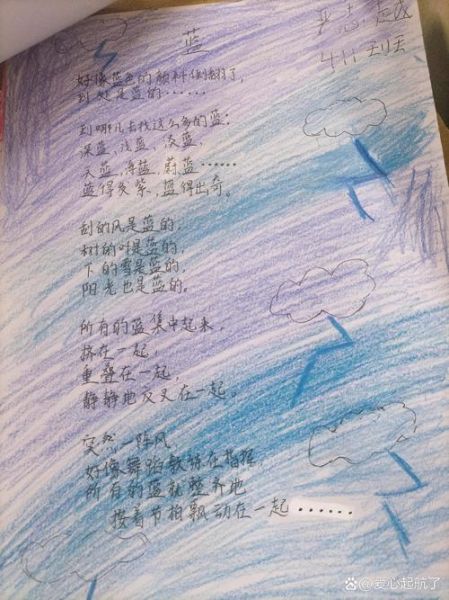 蓝
好像蓝色的颜料倒翻了，
到处是蓝的……
到哪儿去找这么多的蓝：
深蓝、浅蓝、淡蓝、
天蓝、海蓝、蔚蓝……
蓝得发紫，蓝得出奇。
刮的风是蓝的，
树的叶是蓝的，
下的雪是蓝的，
阳光也是蓝的。
所有的蓝集中起来，
挤在一起，
重叠在一起，
静静地交叉在一起。
突然一阵风，
好像舞蹈教练在指挥，
所有的蓝就整齐地
按着节拍飘动在一起……
爱心起航了